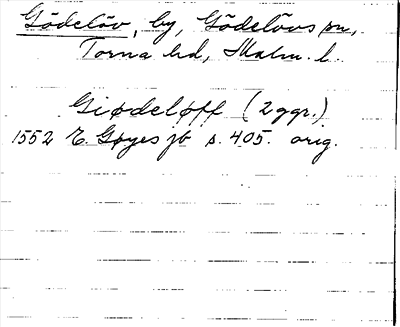 Gödelöv, by, Gödelövs sn,
Torna hd, Malm. l.
Giødeløff (2 ggr.)
1552 E. Gøyes jb s. 405. orig.